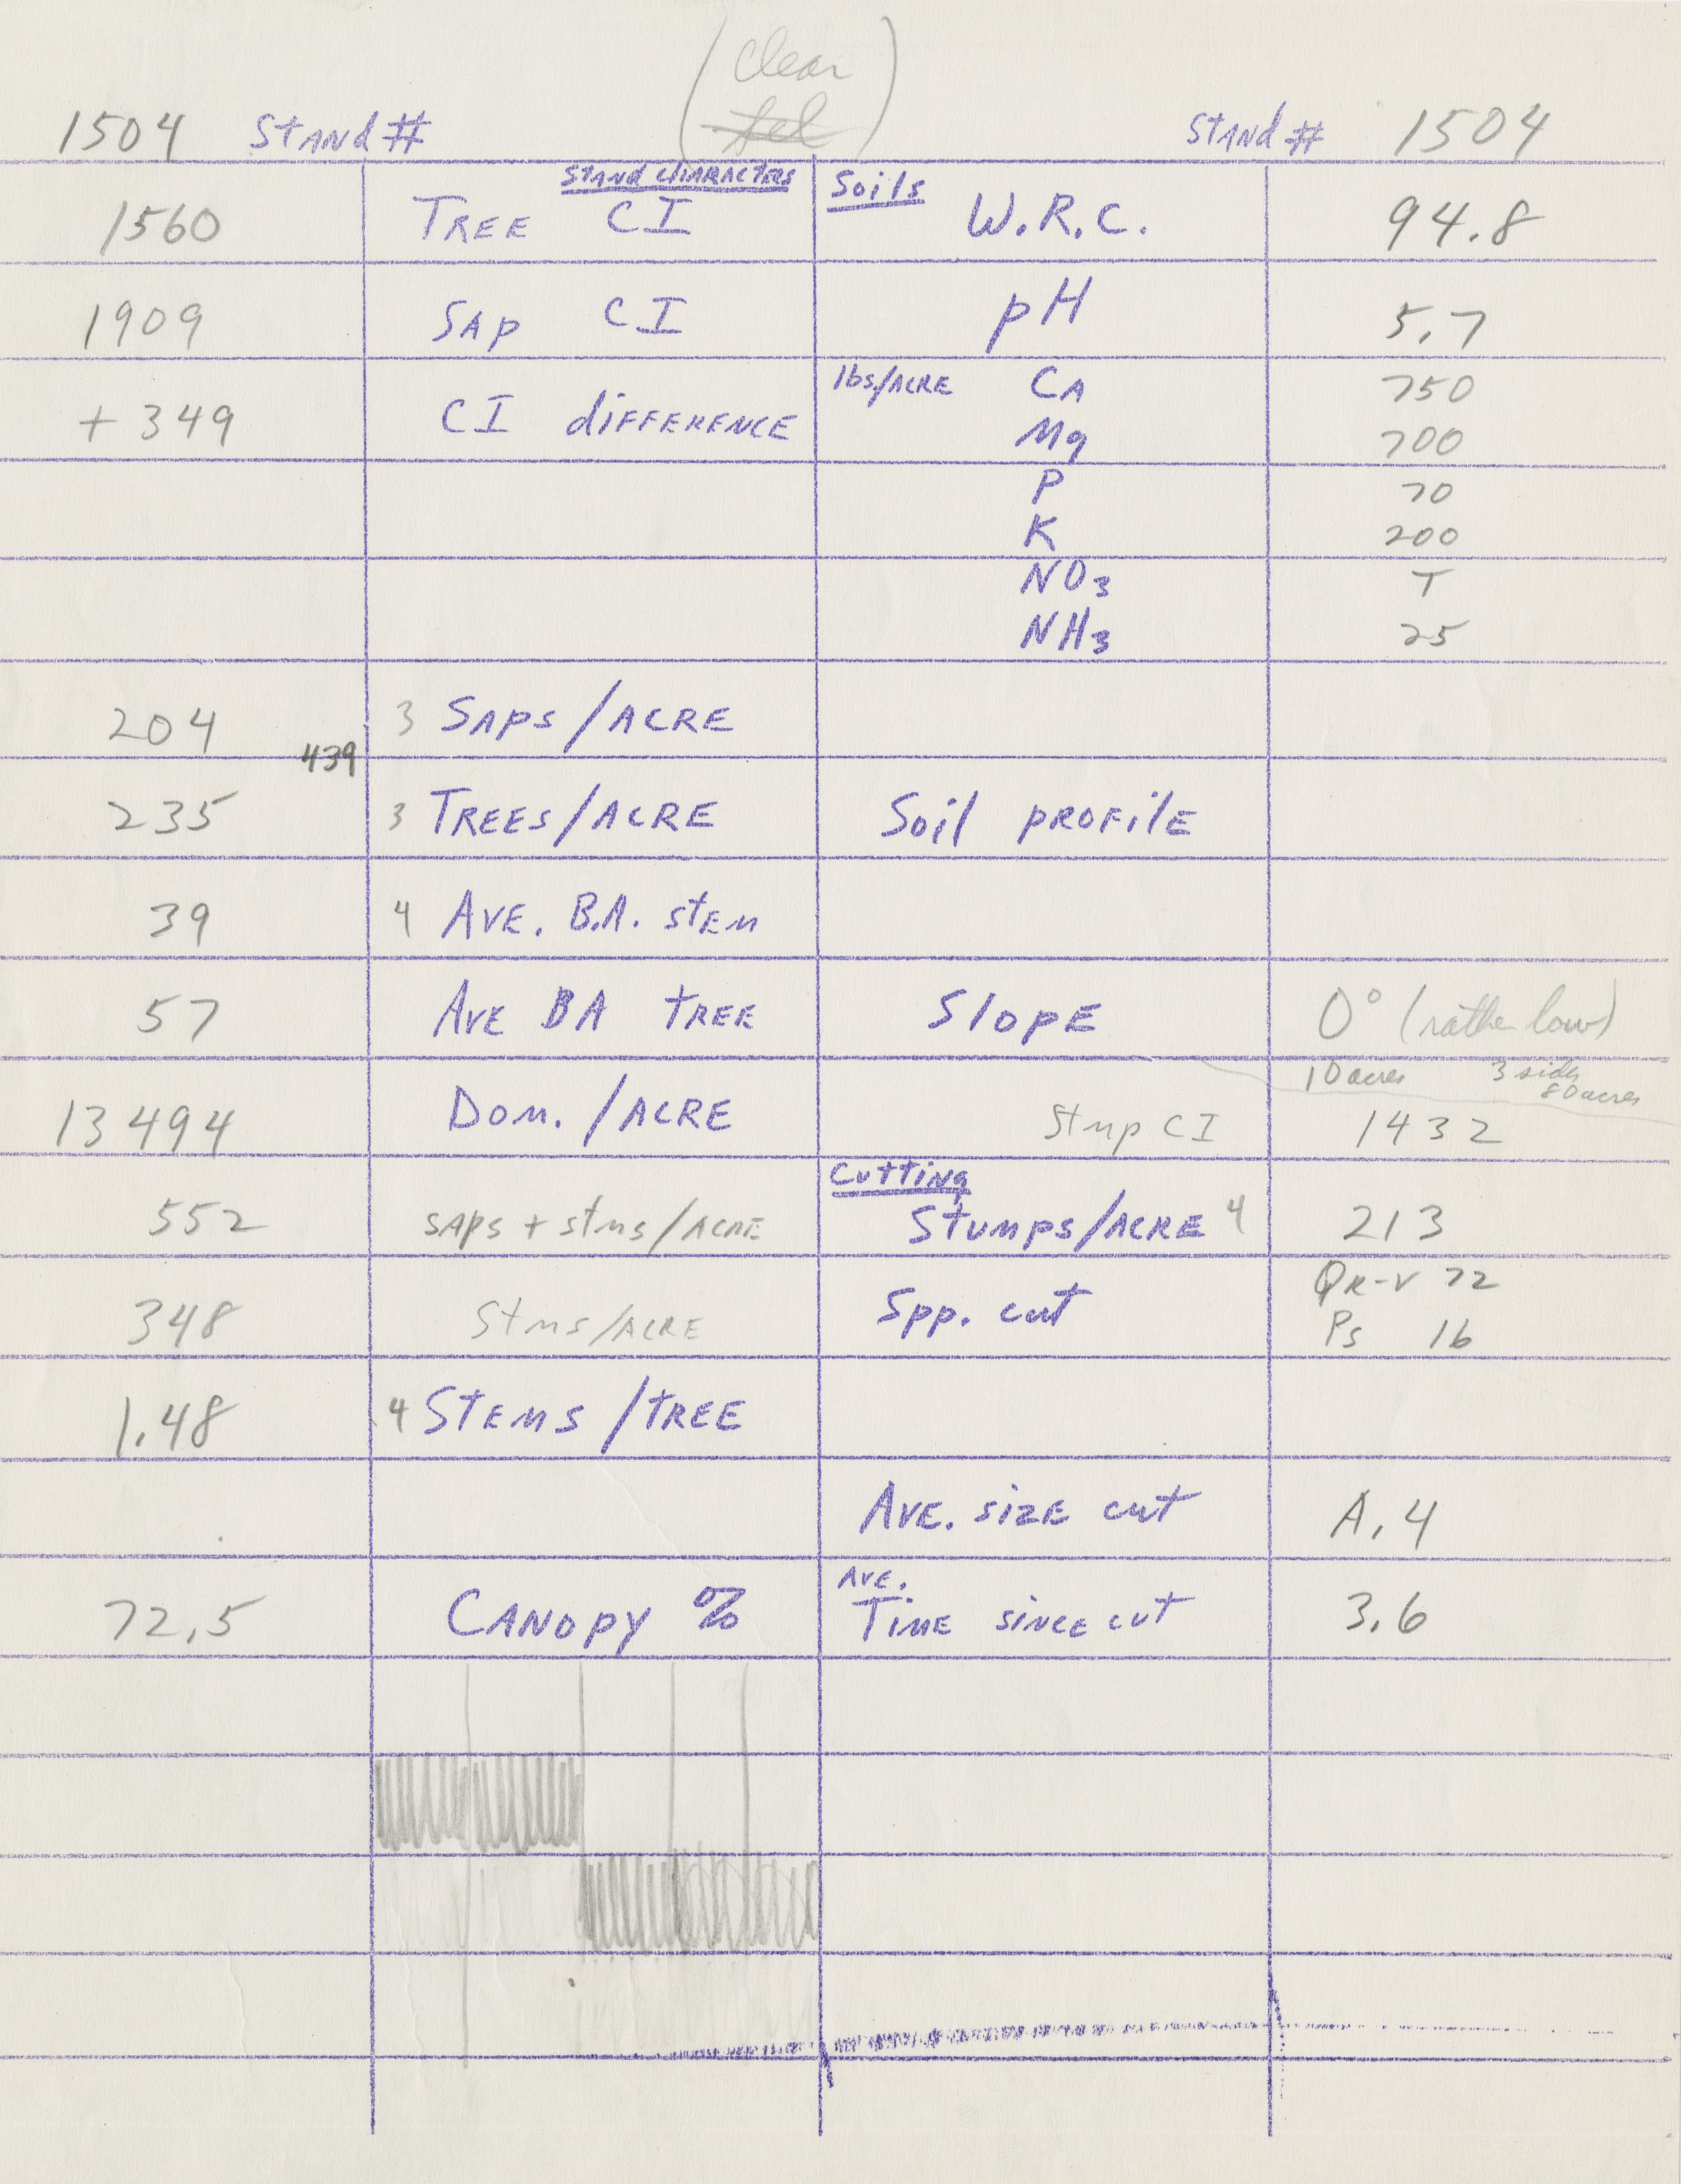 (clear
sel)
1504 STAND# STAND# 1504
STAND CHARACTERS Soils
1560 TREE CI W.R.C. 94.8
1909 SAP CI pH 5.7
lbs/ACRE CA 750
+349 CI diFFERENCE Mg 700
P 70
K 200
NO3 T
NH3 25
204 3 SAPS/ACRE
439
235 3 TREES/ACRE Soil PROFilE
39 4 AVE. B.A. STEM
57 AVE BA TREE SlOPE 0° (rather low)
10 acres 3 sides
80 acres
13494 DOM./ACRE Stmp CI 1432
CuttiNg
552 SAPS + stms/ACRE STUMPS/ACRE 4 213
348 Stms/ACRE Spp. cut QR-V 72
Ps 16
1.48 4 STEMS/TREE
AVE. SIZE cut A.4
AVE.
72.5 CANOPY % TIME SINCE CUT 3.6